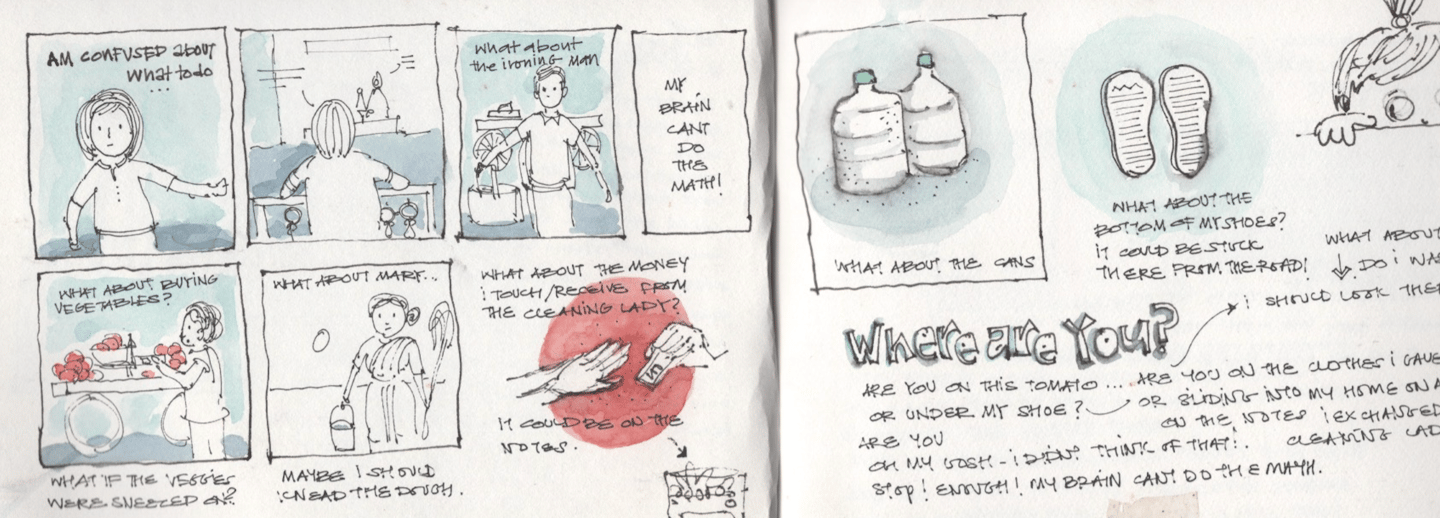 AM CONFUSED about
what to do
...
what about
the ironing man
MY
BRAIN
CANT
DO
THE
MATH!
WHAT ABOUT BUYING
VEGETABLES?
WHAT IF THE VEGGIES
WERE SNEEZED ON?
WHAT ABOUT MARY...
MAYBE I SHOULD
KNEAD THE DOUGH.
WHAT ABOUT THE MONEY
i TOUCH/RECEIVE FROM
THE CLEANING LADY?
IT COULD BE ON THE
NOTES.
WHAT ABOUT THE CANS
WHAT ABOUT THE
BOTTOM OF MY SHOES?
IT COULD BE STUCK
THERE FROM THE ROAD!
WHAT ABOUT
DO i
i SHOULD LOOK
Where are You?
ARE YOU ON THIS TOMATO ... ARE YOU ON THE CLOTHES i GAVE
OR UNDER MY SHOE? OR SLIDING INTO MY HOME ON
ARE YOU ON THE NOTES i EXCHANGED
OH MY GOSH - i DIDN'T THINK OF THAT! CLEANING
STOP! ENOUGH! MY BRAIN CANT DO THE MATH.